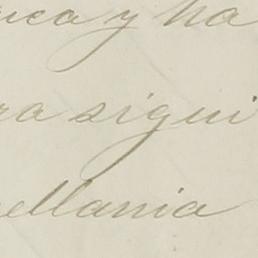 uca y ha
ra sigui
ellania